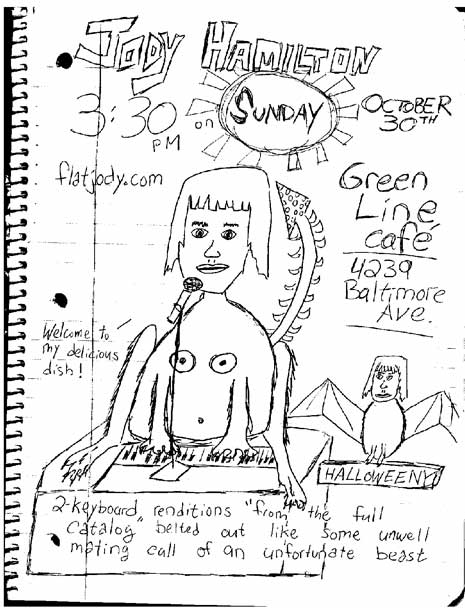 JODY HAMILTON
3:30
PM
on
SUNDAY
OCTOBER
30TH
flatjody.com
Green
Line
café
4239
Baltimore
Ave.
Welcome to
my delicious
dish!
HALLOWEENY!
2-keyboard renditions "from the full
catalog" belted out like some unwell
mating call of an unfortunate beast